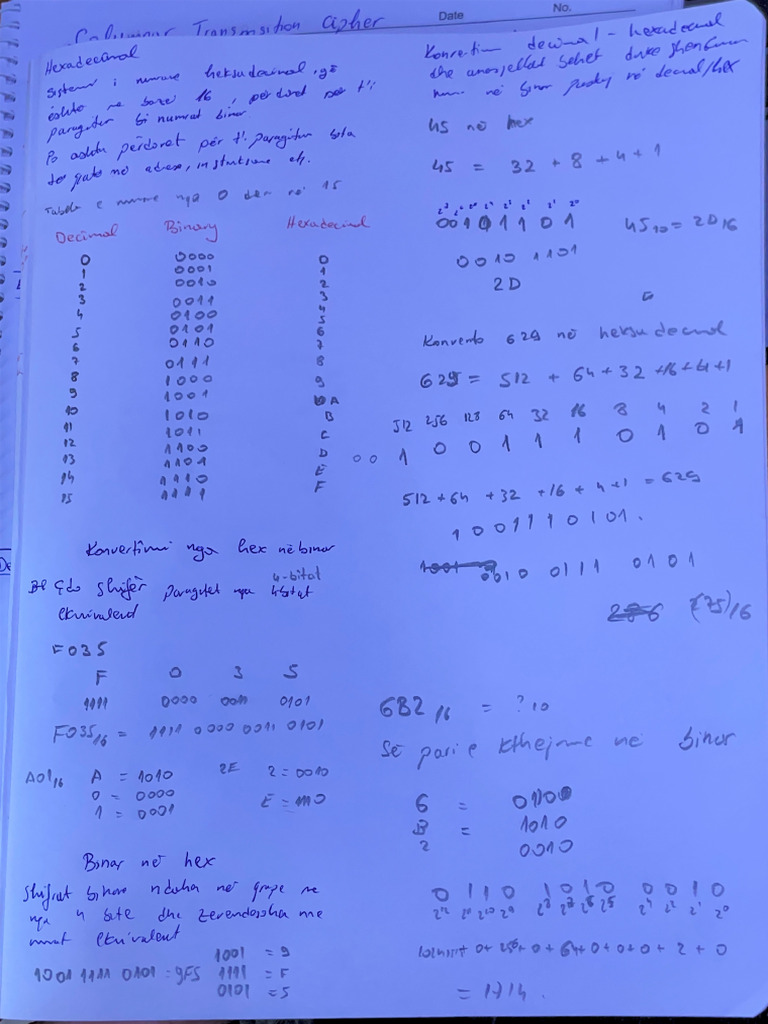 Columnar Transmisition cipher
Date
No.
Hexadecimal
Sistemi i numrave heksadecimal, që
është me bazë 16, përdoret për t'i
paragitur numrat binar
Po ashtu përdoret për t'i paragitur
në adresa, instruksione etj.
Tabela e numrave nga 0 deri në 15
Decimal Binary Hexadecimal
0 0000 0
1 0001 1
2 0010 2
3 0011 3
4 0100 4
5 0101 5
6 0110 6
7 0111 7
8 1000 8
9 1001 9
10 1010 A
11 1011 B
12 1100 C
13 1101 D
14 1110 E
15 1111 F
Konvertimi nga hex në binar
Çdo shifër paragitet nga 4-bitat
ekuivalend
F035
F 0 3 5
1111 0000 0011 0101
F035 16 = 1111 0000 0011 0101
A01 16 A = 1010 2E 2 = 0010
0 = 0000 E = 1110
1 = 0001
Binar në hex
Shifrat binare ndaha në grupe me
nga 4 bite dhe zevendësoha me
numrat ekuivalent
1001 = 9
1001 1111 0101 = 9F5 1111 = F
0101 = 5
Konvertimi decimal - hexadecimal
dhe anasjelltas behet duke shendrruar
numr në binar pastaj në decimal/hex
45 në hex
45 = 32 + 8 + 4 + 1
00101101 45 10 = 2D 16
0010 1101
2D
Konverto 629 në heksadecimal
629 = 512 + 64 + 32 + 16 + 4 + 1
512 256 128 64 32 16 8 4 2 1
0 0 1 0 0 1 1 1 0 1 0 1
512 + 64 + 32 + 16 + 4 + 1 = 629
1001110101.
0010 0111 0101
(275)16
6B2 16 = ? 10
Së pari e kthejme në binar
6 = 0110
B = 1010
2 = 0010
0 1 1 0 1 0 1 0 0 0 1 0
0 + 256 + 0 + 64 + 0 + 0 + 0 + 2 + 0
= 1714.